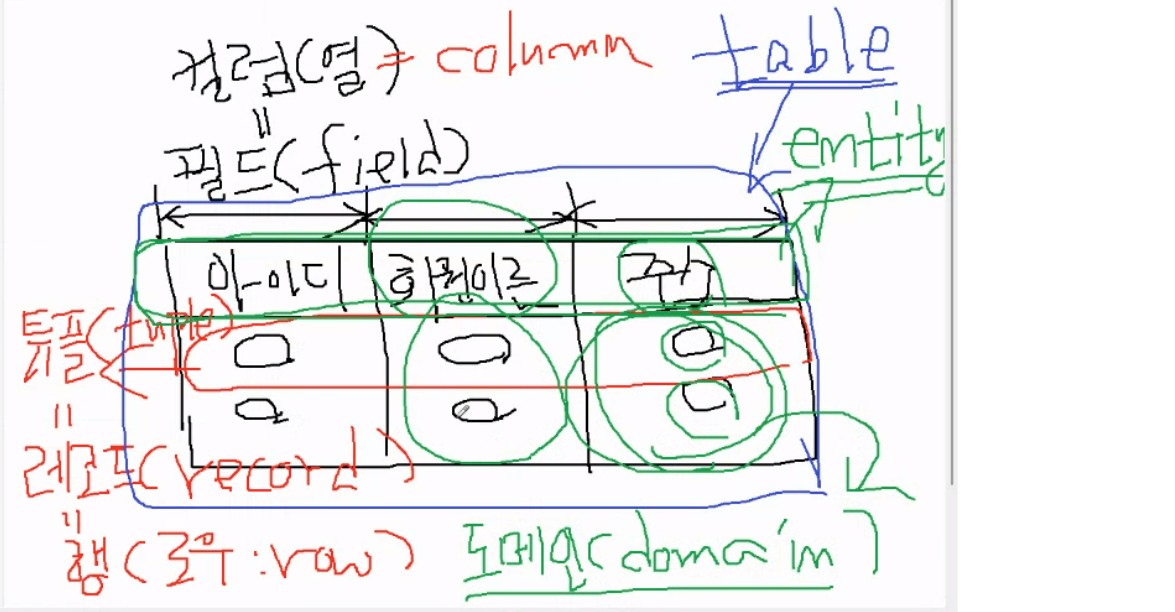 컬럼(열) = column
table
=
필드(field)
entity
아이디 패워드 주소
튜플(tuple)
=
레코드(record)
=
행(로우:row)
도메인(domain)